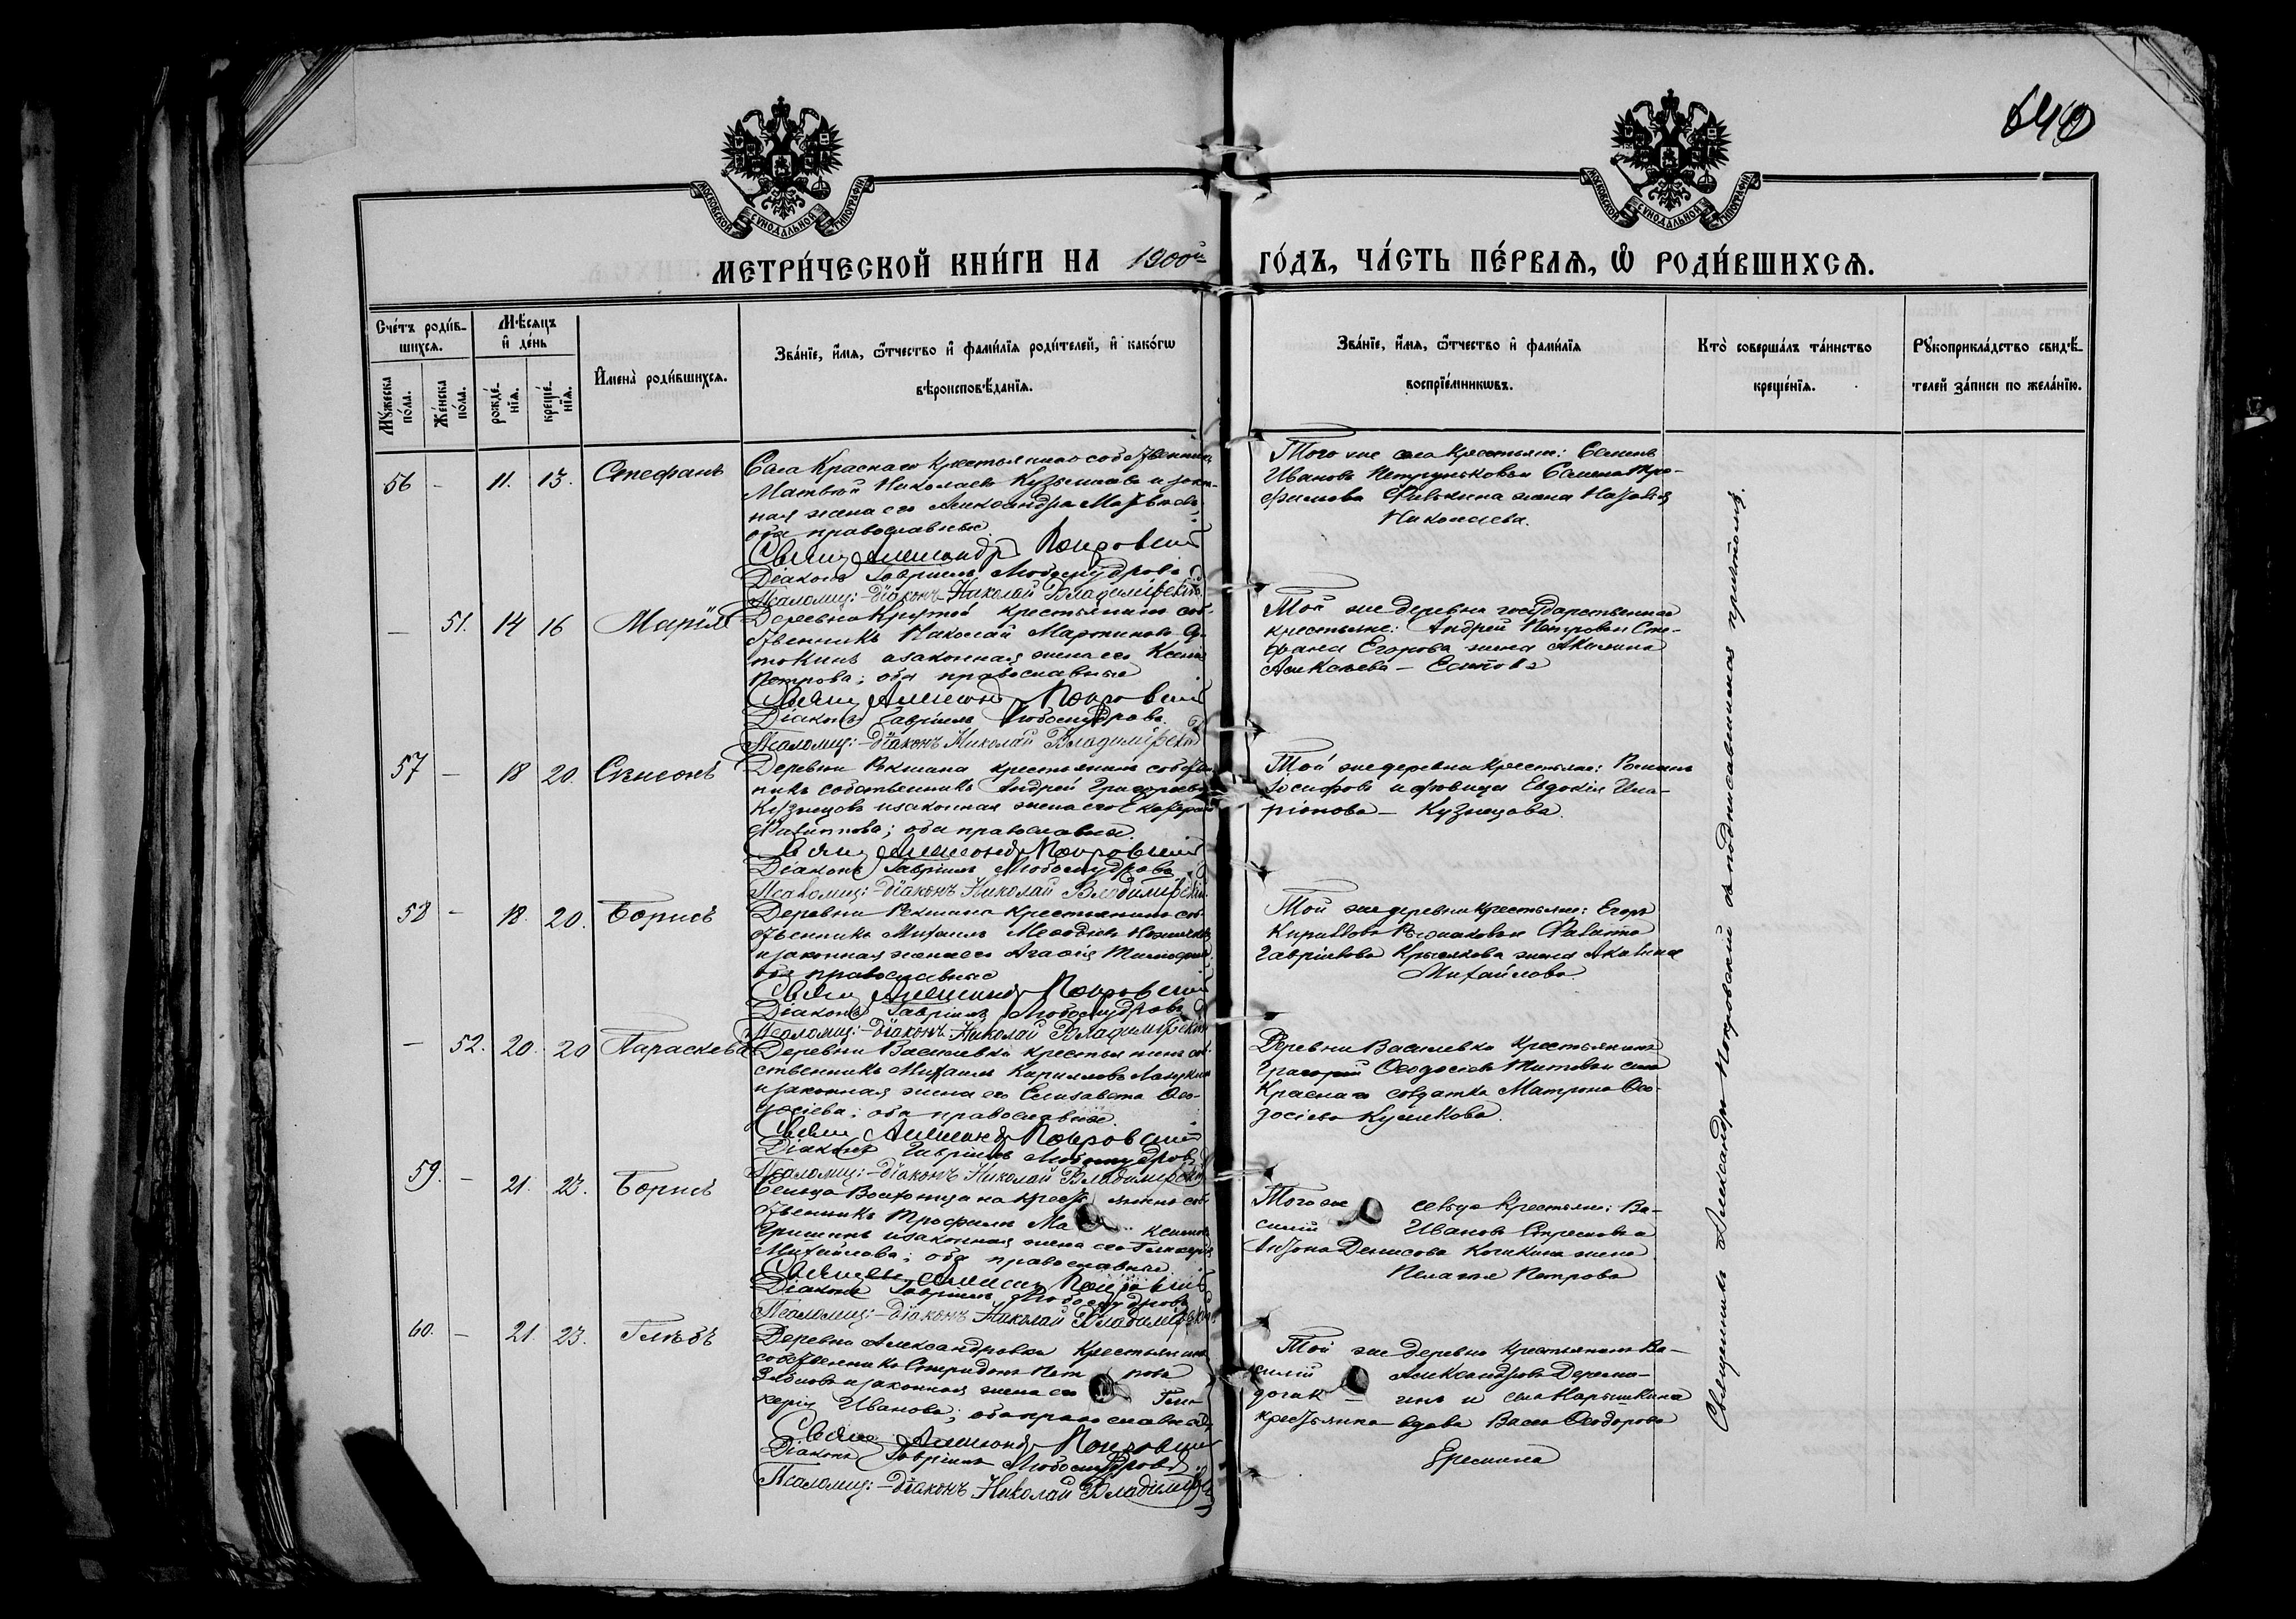 640
МОСКОВСКОЙ СѴНОДАЛЬНОЙ ТИПОГРАФІИ
МОСКОВСКОЙ СѴНОДАЛЬНОЙ ТИПОГРАФІИ
МЕТРИ́ЧЕСКОЙ КНИ́ГИ НА 1900й ГО́ДЪ, ЧА́СТЬ ПЕ́РВАѦ, Ѡ҆ РОДИ́ВШИХСѦ.
Сче́тъ роди́в-
шихсѧ.
Мꙋ́жеска
по́ла.
Же́нска
по́ла.
Мѣ́сѧцъ
и҆ де́нь
рожде́-
нїѧ.
креще́-
нїѧ.
И҆мена̀ роди́вшихсѧ.
Зва́нїе, и҆́мѧ, ѻ҆́тчество и҆ фами́лїѧ роди́телей, и҆ како́гѡ
вѣроисповѣ́данїѧ.
Зва́нїе, и҆́мѧ, ѻ҆́тчество и҆ фами́лїѧ
воспрїе́мникѡвъ.
Кто̀ соверша́лъ та́инство
креще́нїѧ.
Рꙋкоприкла́дство свидѣ́-
телей за́писи по жела́нїю.
56 - 11. 13. Стефанъ
Села Краснаго Крестьянинъ собственникъ
Матвей Николаевъ Кузьминовъ и закон-
ная жена его Александра Матвеева,
оба православные.
Свящ. Александр Покровский
Діаконъ Гавріилъ Любомудровъ
Псаломщ: -діаконъ Николай Владимірскій
Того же села крестьяне: Семенъ
Ивановъ Петруньковъ и Семена Тро-
фимова жена Наталія
Николаева.
- 51. 14 16 Марія
Деревни Крутой крестьянинъ соб-
ственникъ Николай Мартиновъ
и законная жена его Ксенія
Петрова; оба православные
Свящ Александр Покровский
Діаконъ Гавріилъ Любомудровъ.
Псаломщ: -діаконъ Николай Владимірскій
Той же деревни государственные
крестьяне: Андрей Петровъ и Сте-
фана Егорова жена Акилина
Алексеева -
57 - 18 20. Сѵмеонъ
Деревни крестьянинъ собствен-
никъ собственникъ Андрей Григорьевъ
Кузнецовъ и законная жена его Екатерина
Филиппова; оба православные.
Свящ Александр Покровский
Діаконъ Гавріилъ Любомудровъ
Псаломщ: -діаконъ Николай Владимірскій
Той же деревни крестьяне: Романъ
Іосифовъ и девица Евдокія Ила-
ріонова - Кузнецова.
58 - 18. 20. Борисъ
Деревни крестьянинъ соб-
ственникъ Михаилъ
и законная жена его Агафія
оба православные
Свящ Александр Покровский
Діаконъ Гавріилъ Любомудровъ
Псаломщ: -діаконъ Николай Владимірскій
Той же деревни крестьяне: Егоръ
Кирилловъ и Филиппа
Гавріилова жена Акилина
Михайлова.
- 52. 20. 20 Параскева
Деревни Василевки крестьянинъ соб-
ственникъ Михаилъ Кирилловъ
и законная жена его Елизавета Ѳео-
досіева; оба православные.
Свящ Александр Покровский
Діаконъ Гавріилъ Любомудровъ
Псаломщ: -діаконъ Николай Владимірскій
Деревни Василевки Крестьянинъ
Григорій Ѳеодосіевъ Титовъ и села
Краснаго солдатка Матрона Ѳео-
досіева Куликова.
59. - 21. 23. Борисъ
Сельца крестьянинъ соб-
ственникъ Трофимъ Ма
Гришинъ и законная жена его Гликерія
Михайлова; оба православные.
Священ. Александр Покровский
Діаконъ Гавріилъ Любомудровъ
Псаломщ: -діаконъ Николай Владимірскій
Того же сельца Крестьяне: Ва-
силій Ивановъ и
Антона Денисова жена
Пелагія Петрова
60. - 21. 23. Глѣбъ
Деревни Александровки Крестьянинъ
собственникъ Спиридонъ Петровъ
и законная жена его Гли-
керія Иванова; оба православные
Свящ. Александр Покровский
Діаконъ Гавріилъ Любомудровъ
Псаломщ: -діаконъ Николай Владимірскій
Той же деревни Крестьянинъ Ва-
силій Александровъ
и села Нарышкина
крестьянка вдова Васса Ѳеодорова
Еремина
Священникъ Александръ Покровскій съ подписавшимся причтомъ.